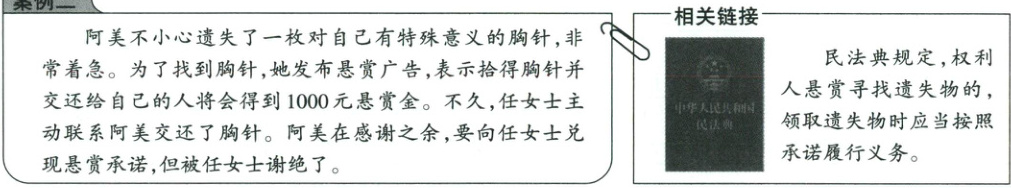 案例二
阿美不小心遗失了一枚对自己有特殊意义的胸针,非
常着急。为了找到胸针,她发布悬赏广告,表示拾得胸针并
交还给自己的人将会得到1000元悬赏金。不久,任女士主
动联系阿美交还了胸针。阿美在感谢之余,要向任女士兑
现悬赏承诺,但被任女士谢绝了。
相关链接
中华人民共和国
民法典
民法典规定,权利
人悬赏寻找遗失物的,
领取遗失物时应当按照
承诺履行义务。